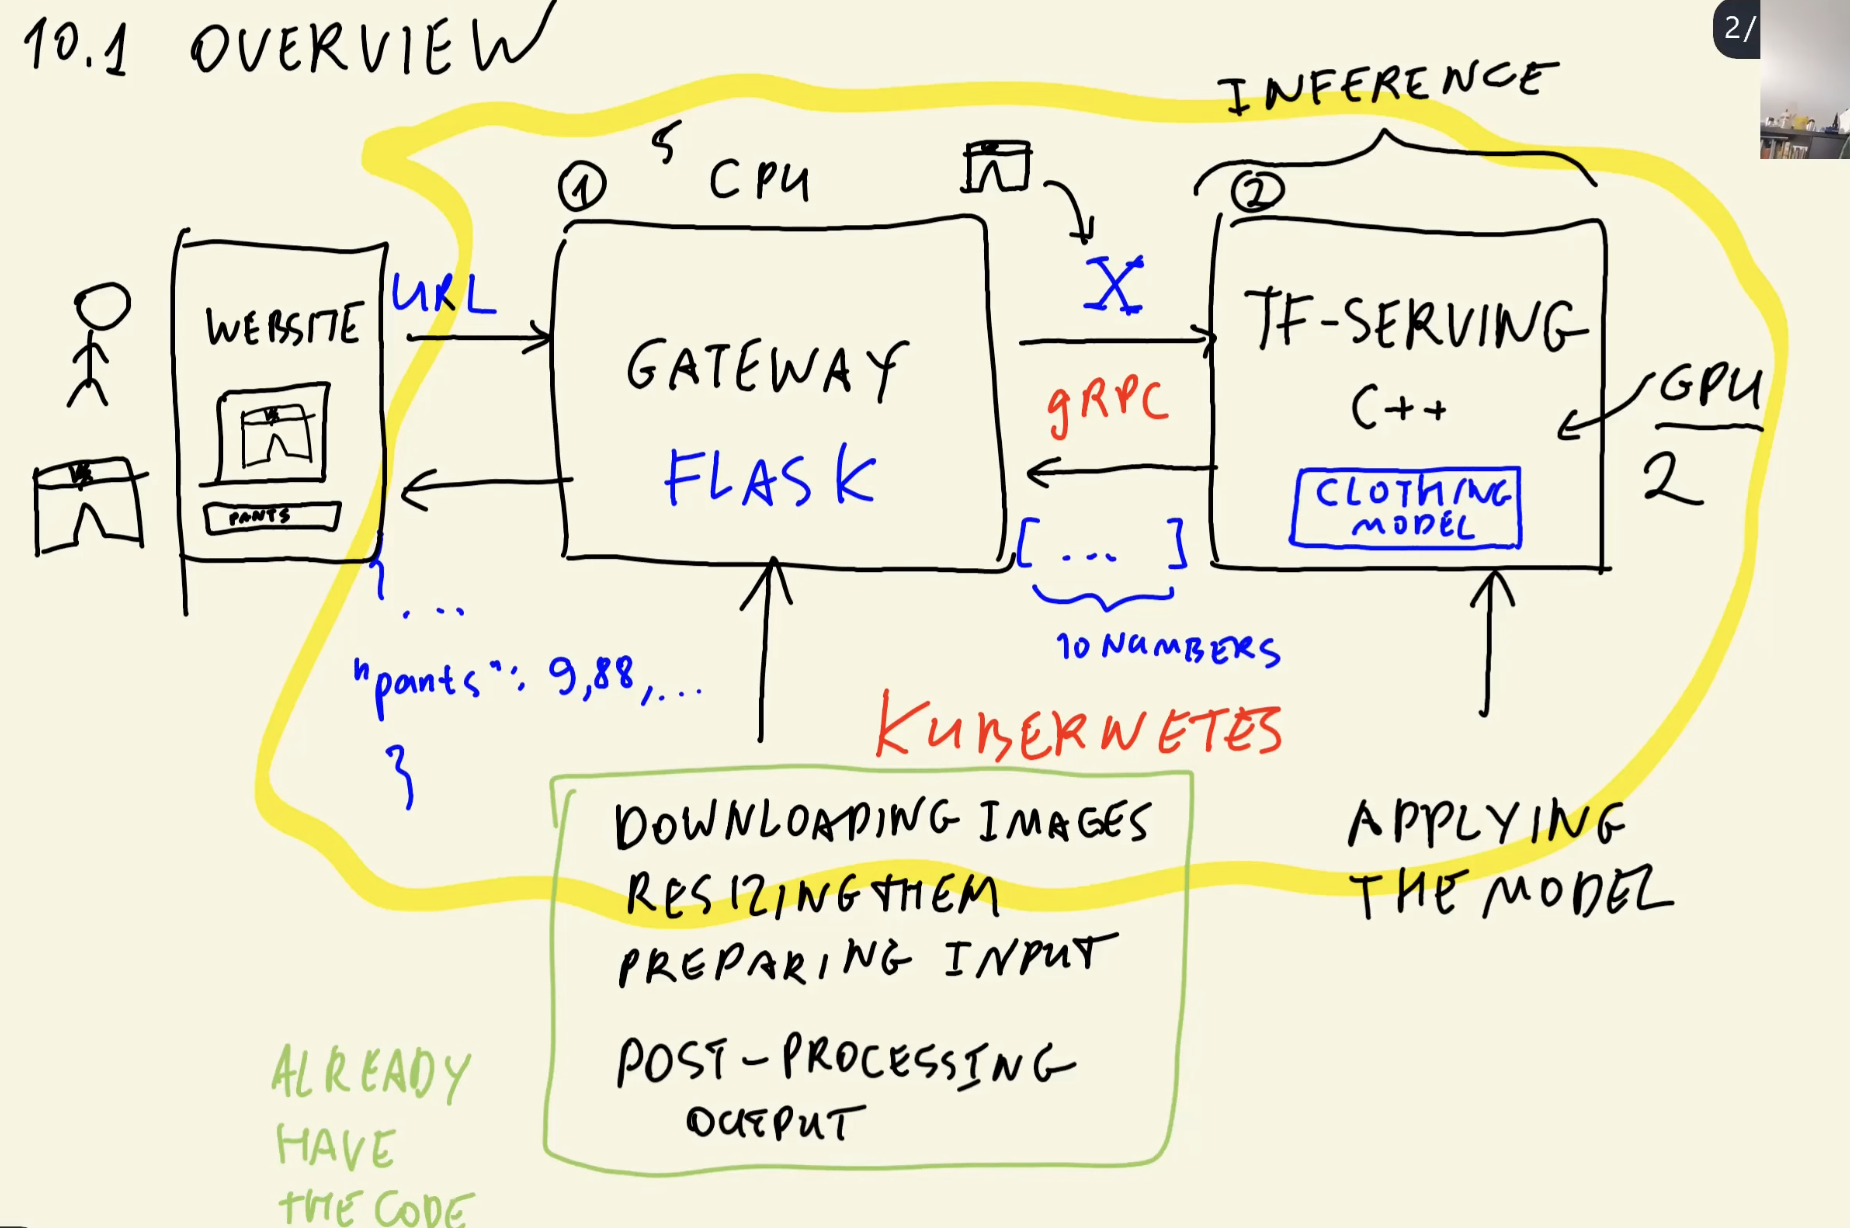 10.1 OVERVIEW
2/
INFERENCE
① 5 CPU
②
WEBSITE
PANTS
URL
GATEWAY
FLASK
X
gRPC
[ ... ]
10 NUMBERS
TF-SERVING
C++
CLOTHING
MODEL
GPU
2
{
...
"pants": 9,88,...
}
KUBERNETES
DOWNLOADING IMAGES
RESIZING THEM
PREPARING INPUT
POST-PROCESSING
OUTPUT
APPLYING
THE MODEL
ALREADY
HAVE
THE CODE